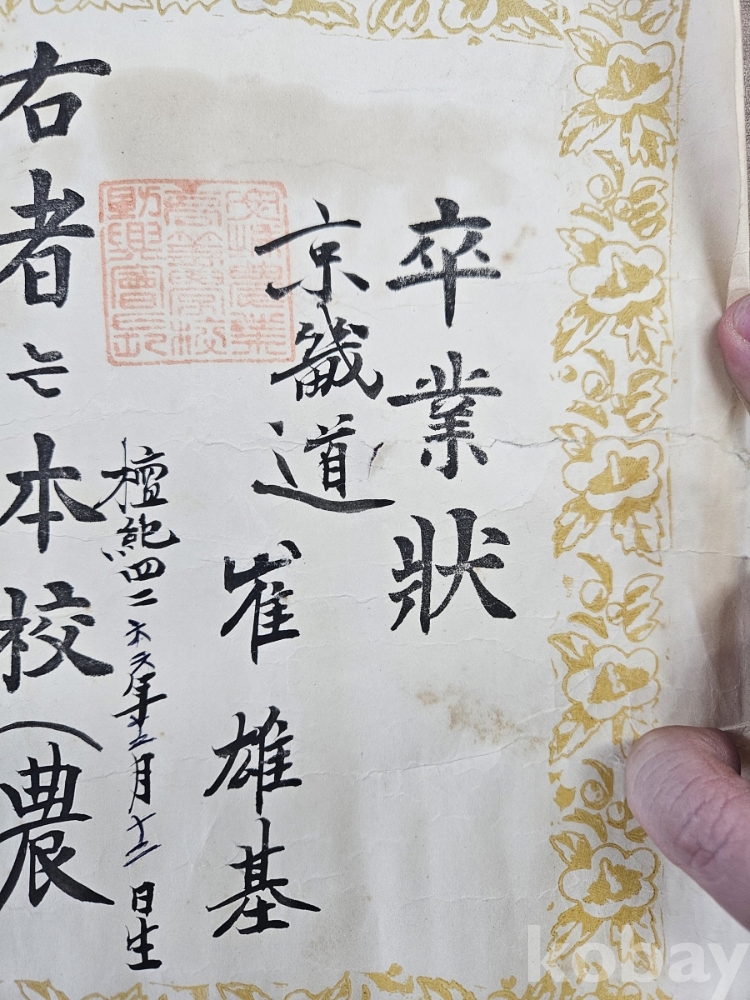 卒業狀
京畿道 崔雄基
檀紀四二六年十二月十二日生
右者는本校(農
kobay